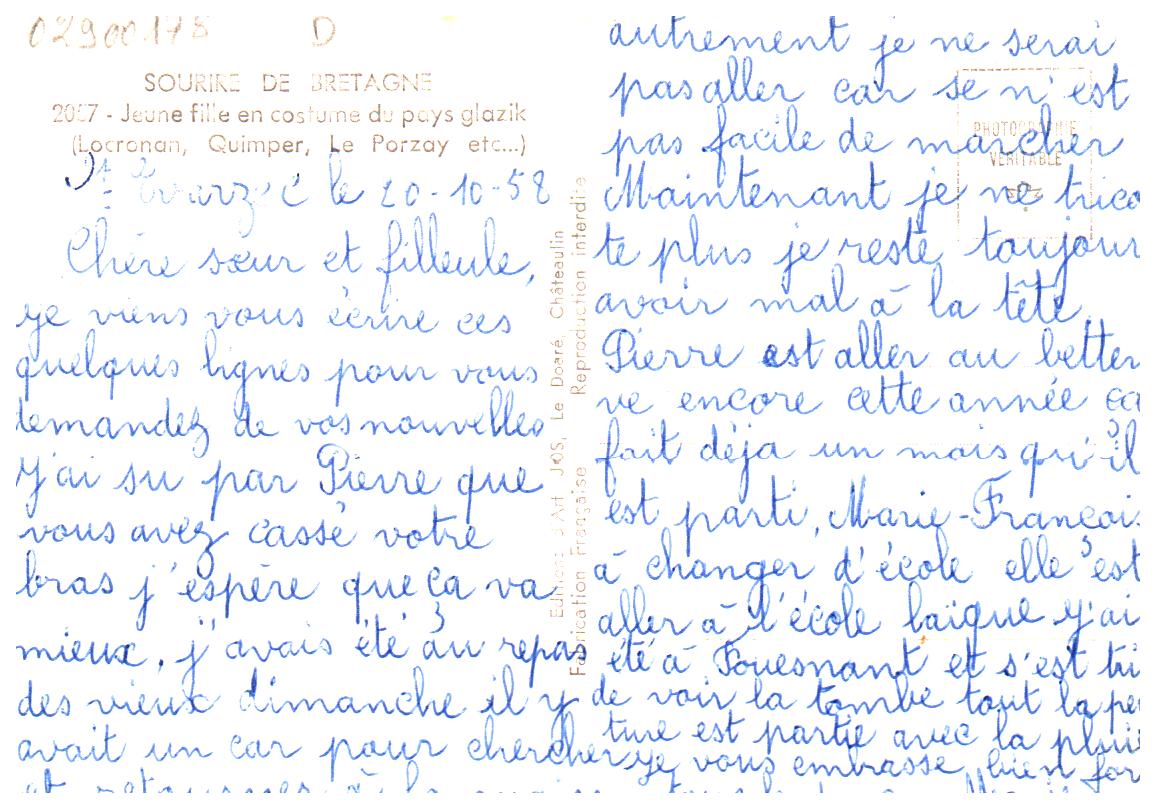 02900178 D
SOURIRE DE BRETAGNE
2057 - Jeune fille en costume du pays glazik
(Locronan, Quimper, Le Porzay etc...)
St Evarzec le 20-10-58
Chère sœur et filleule,
je viens vous écrire ces
quelques lignes pour vous
demandez de vos nouvelles
j'ai su par Pierre que
vous avez cassé votre
bras j'espère que ça va
mieux, j'avais été au repas
des vieux dimanche il y
avait un car pour chercher
et retourner à la
Editions d'Art JOS, Le Doaré, Châteaulin
Fabrication Française Reproduction interdite
PHOTOGRAPHIE
VÉRITABLE
autrement je ne serai
pas aller car se n'est
pas facile de marcher
Maintenant je ne trico
te plus je reste toujour
avoir mal à la tête,
Pierre est aller au better
ve encore cette année ça
fait déja un mois qu'il
est parti, Marie-Françoi
à changer d'école elle est
aller à l'école laïque j'ai
été à Fouesnant et s'est tri
de voir la tombe tout la pe
ture est partie avec la plui
je vous embrasse bien for